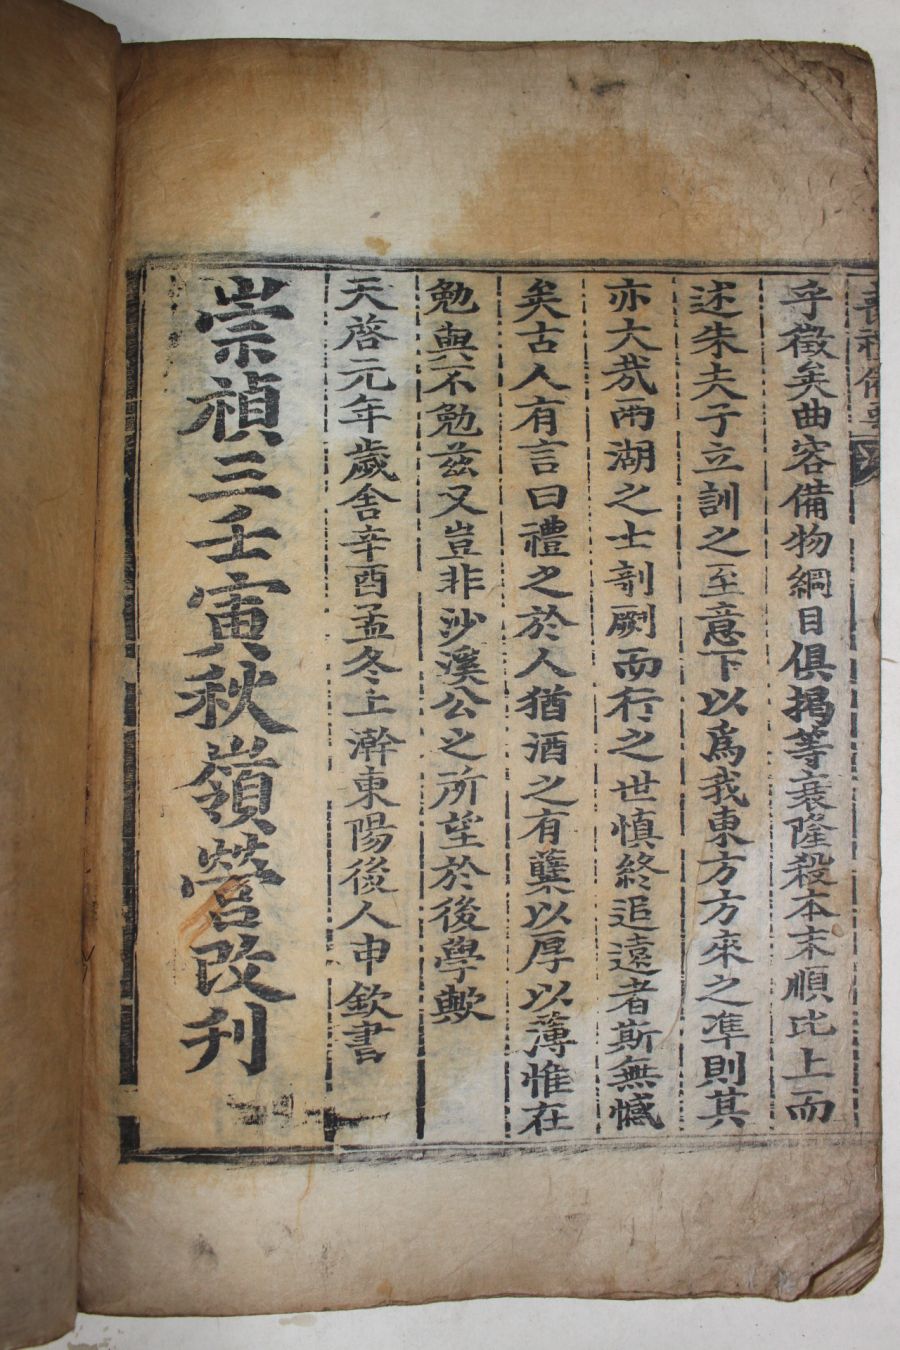 喪禮備要
乎徵矣曲容備物綱目俱揭等衰隆殺本末順比上而
述朱夫子立訓之至意下以爲我東方方來之準則其
亦大㦲兩湖之士剞劂而行之世愼終追遠者斯無憾
矣古人有言曰禮之於人猶酒之有蘗以厚以薄惟在
勉與不勉茲又豈非沙溪公之所望於後學歟
天啓元年歲舍辛酉孟冬上澣東陽後人申欽書
崇禎三壬寅秋嶺營改刊